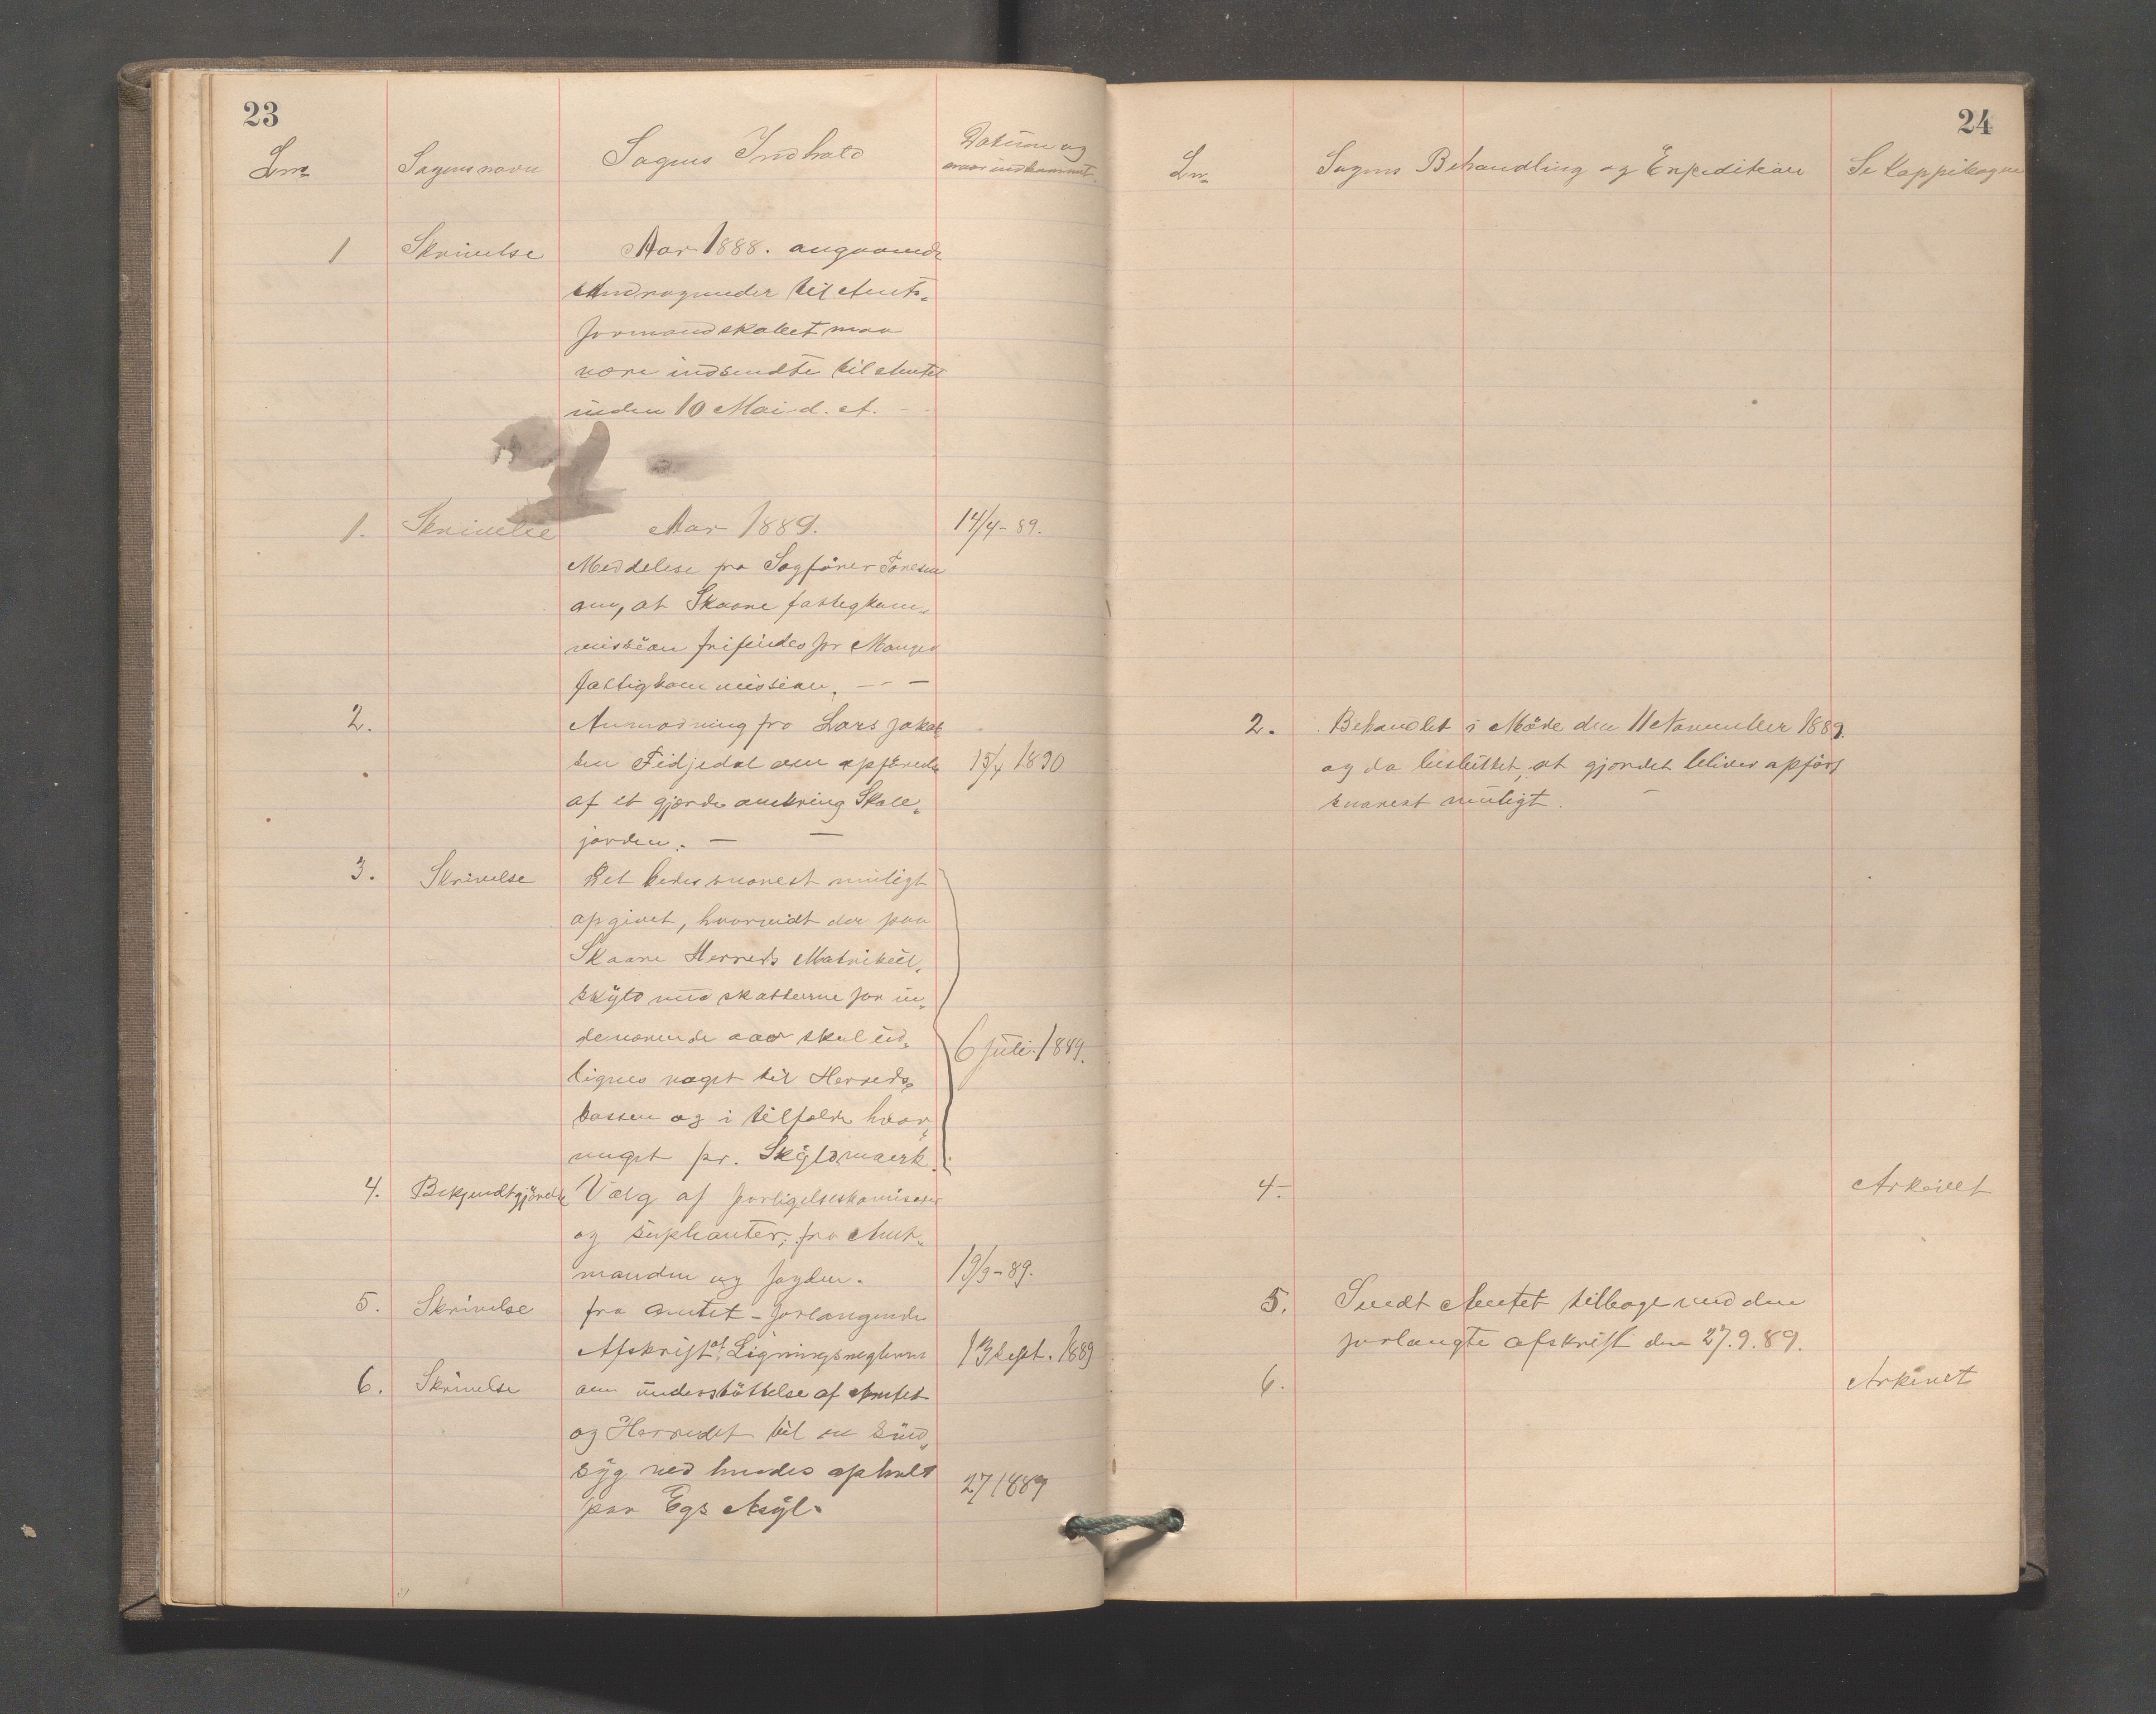 23
Lnr. Sagens navn Sagens Indhold Datum og
naar indkommet.
1 Skrivelse Aar 1888. angaaende
Andragender til Amts-
formandskabet maa
være indsendte til Amtet
inden 10 Mai d. A. -
1. Skrivelse Aar 1889. 14/4-89.
Meddelese fra Sagfører
om, at Skaare fattigkom-
mission frifindes for Manger
fattigkommission. - - -
2. Anmodning fra Lars Jakob-
sen Fidjedal om opførelse 15/4 1890
af et gjerde omkring Skole-
jorden. - -
3. Skrivelse Det bedes snarest muligt
opgivet, hvorvidt der paa
Skaare Herreds Matrikül-
skyld med skatterne for in-
deværende aar skal üd-
lignes noget til Herreds- 6 Juli. 1889.
kassen og i tilfælde hvor-
meget pr. Skyldmaerk.
4. Bekjendtgjørelse Valg af forligelseskomisærer
og süpleanter, fra Amt-
manden og fogden. 19/9-89.
5. Skrivelse fra Amtet - forlangende
Afskrift af Ligningsreglerne 13 Sept. 1889
6. Skrivelse om ünderstöttelse af Amtet
og Herredet til en Sind-
syg ved hendes ophold
paa Egs Asyl. 27 1889
24
Lnr. Sagens Behandling og Expedition Se Koppibogen
2. Behandlet i Møde den 11 November 1889.
og da beslüttet, at gjerdet bliver opført
snarest müligt.
4. Arkivet
5. Sendt Amtet tilbage med den
forlangte afskrift den 27.9.89.
6. Arkivet